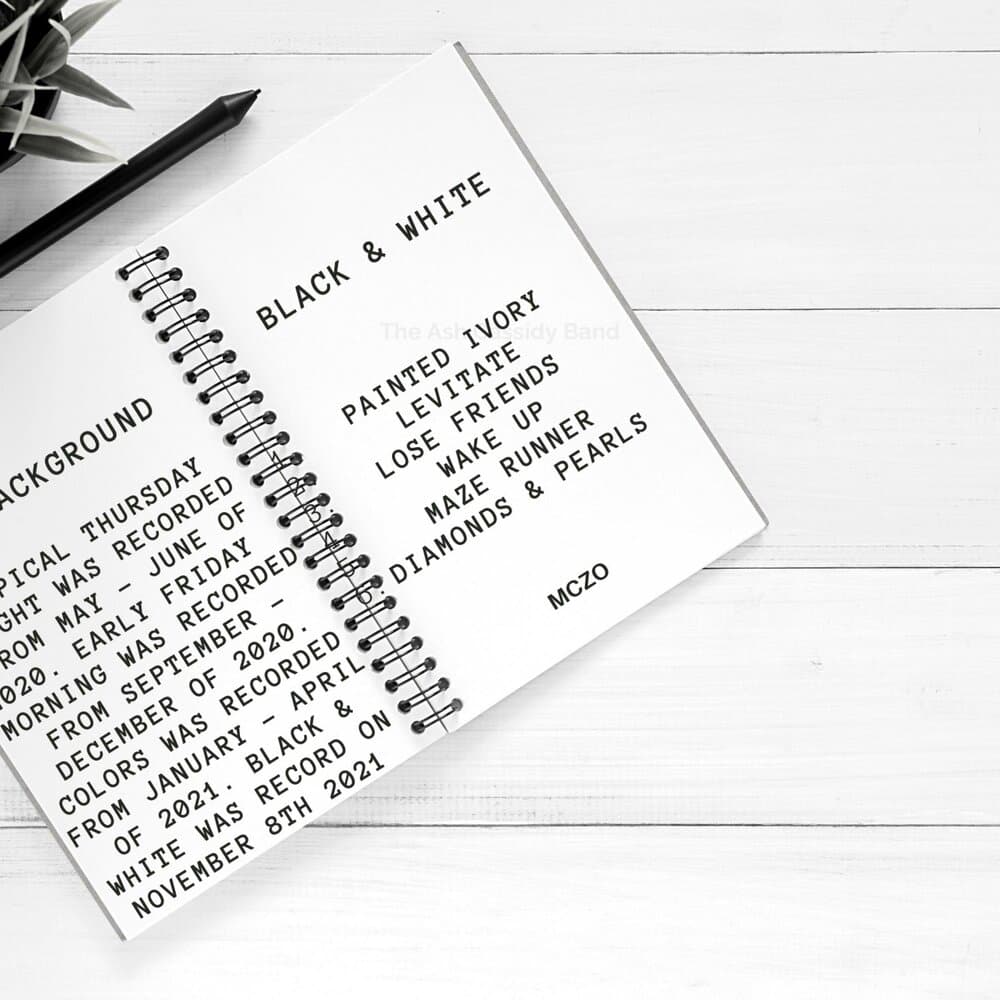 ACKGROUND
PICAL THURSDAY
GHT WAS RECORDED
ROM MAY – JUNE OF
020. EARLY FRIDAY
MORNING WAS RECORDED
FROM SEPTEMBER –
DECEMBER OF 2020.
COLORS WAS RECORDED
FROM JANUARY – APRIL
OF 2021. BLACK &
WHITE WAS RECORD ON
NOVEMBER 8TH 2021
BLACK & WHITE
The Ash Cassidy Band
PAINTED IVORY
LEVITATE
LOSE FRIENDS
WAKE UP
MAZE RUNNER
DIAMONDS & PEARLS
MCZO
1.
2.
3.
4.
5.
6.